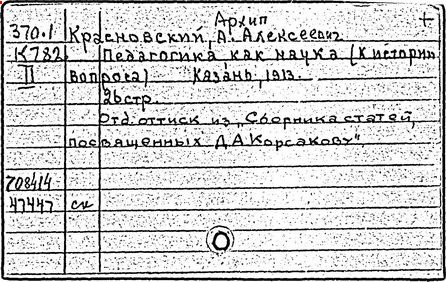 Архип +
370.1 Красновский, А. Алексеевич.
К782 Педагогика, как наука (К истории
II вопроса) Казань, 1913.
26 стр.
Отд. оттиск из „Сборника статей,
посвященных Д.А. Корсакову"
708414
47447 сн